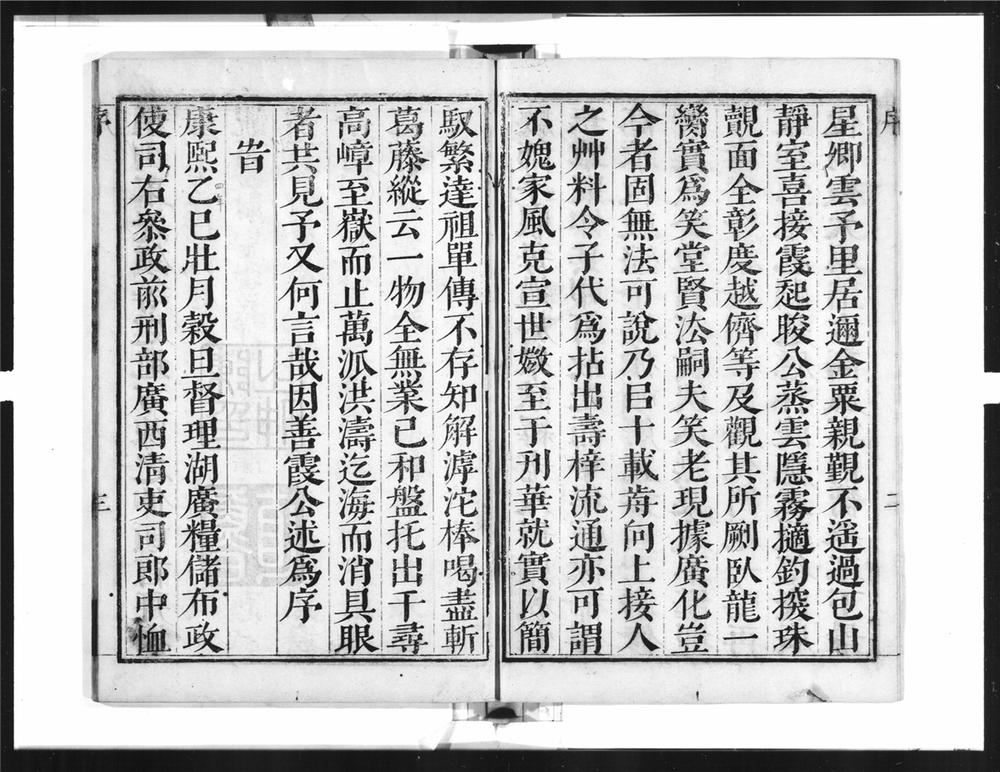 序
二
星卿雲予里居邇金粟親觐不遥過包山
靜室喜接霞起晙公蒸雲隱霧擿釣撥珠
覿面全彰度越儕等及觀其所劂臥龍一
臠實爲笑堂賢法嗣夫笑老現據廣化豈
今者固無法可說乃㠯十載歬向上接人
之艸料令子代爲拈出壽梓流通亦可謂
不媿家風克宣世嫩至于刋華就實以簡
馭繁達祖單傳不存知解滹沱棒喝盡斬
葛藤縱云一物全無業已和盤托出千尋
高嶂至嶽而止萬派洪濤迄海而消具眼
者共見予又何言哉因善霞公述爲序
旹
康熙乙巳壯月穀旦督理湖廣糧儲布政
使司右叅政歬刑部廣西清吏司郎中恤
序
三